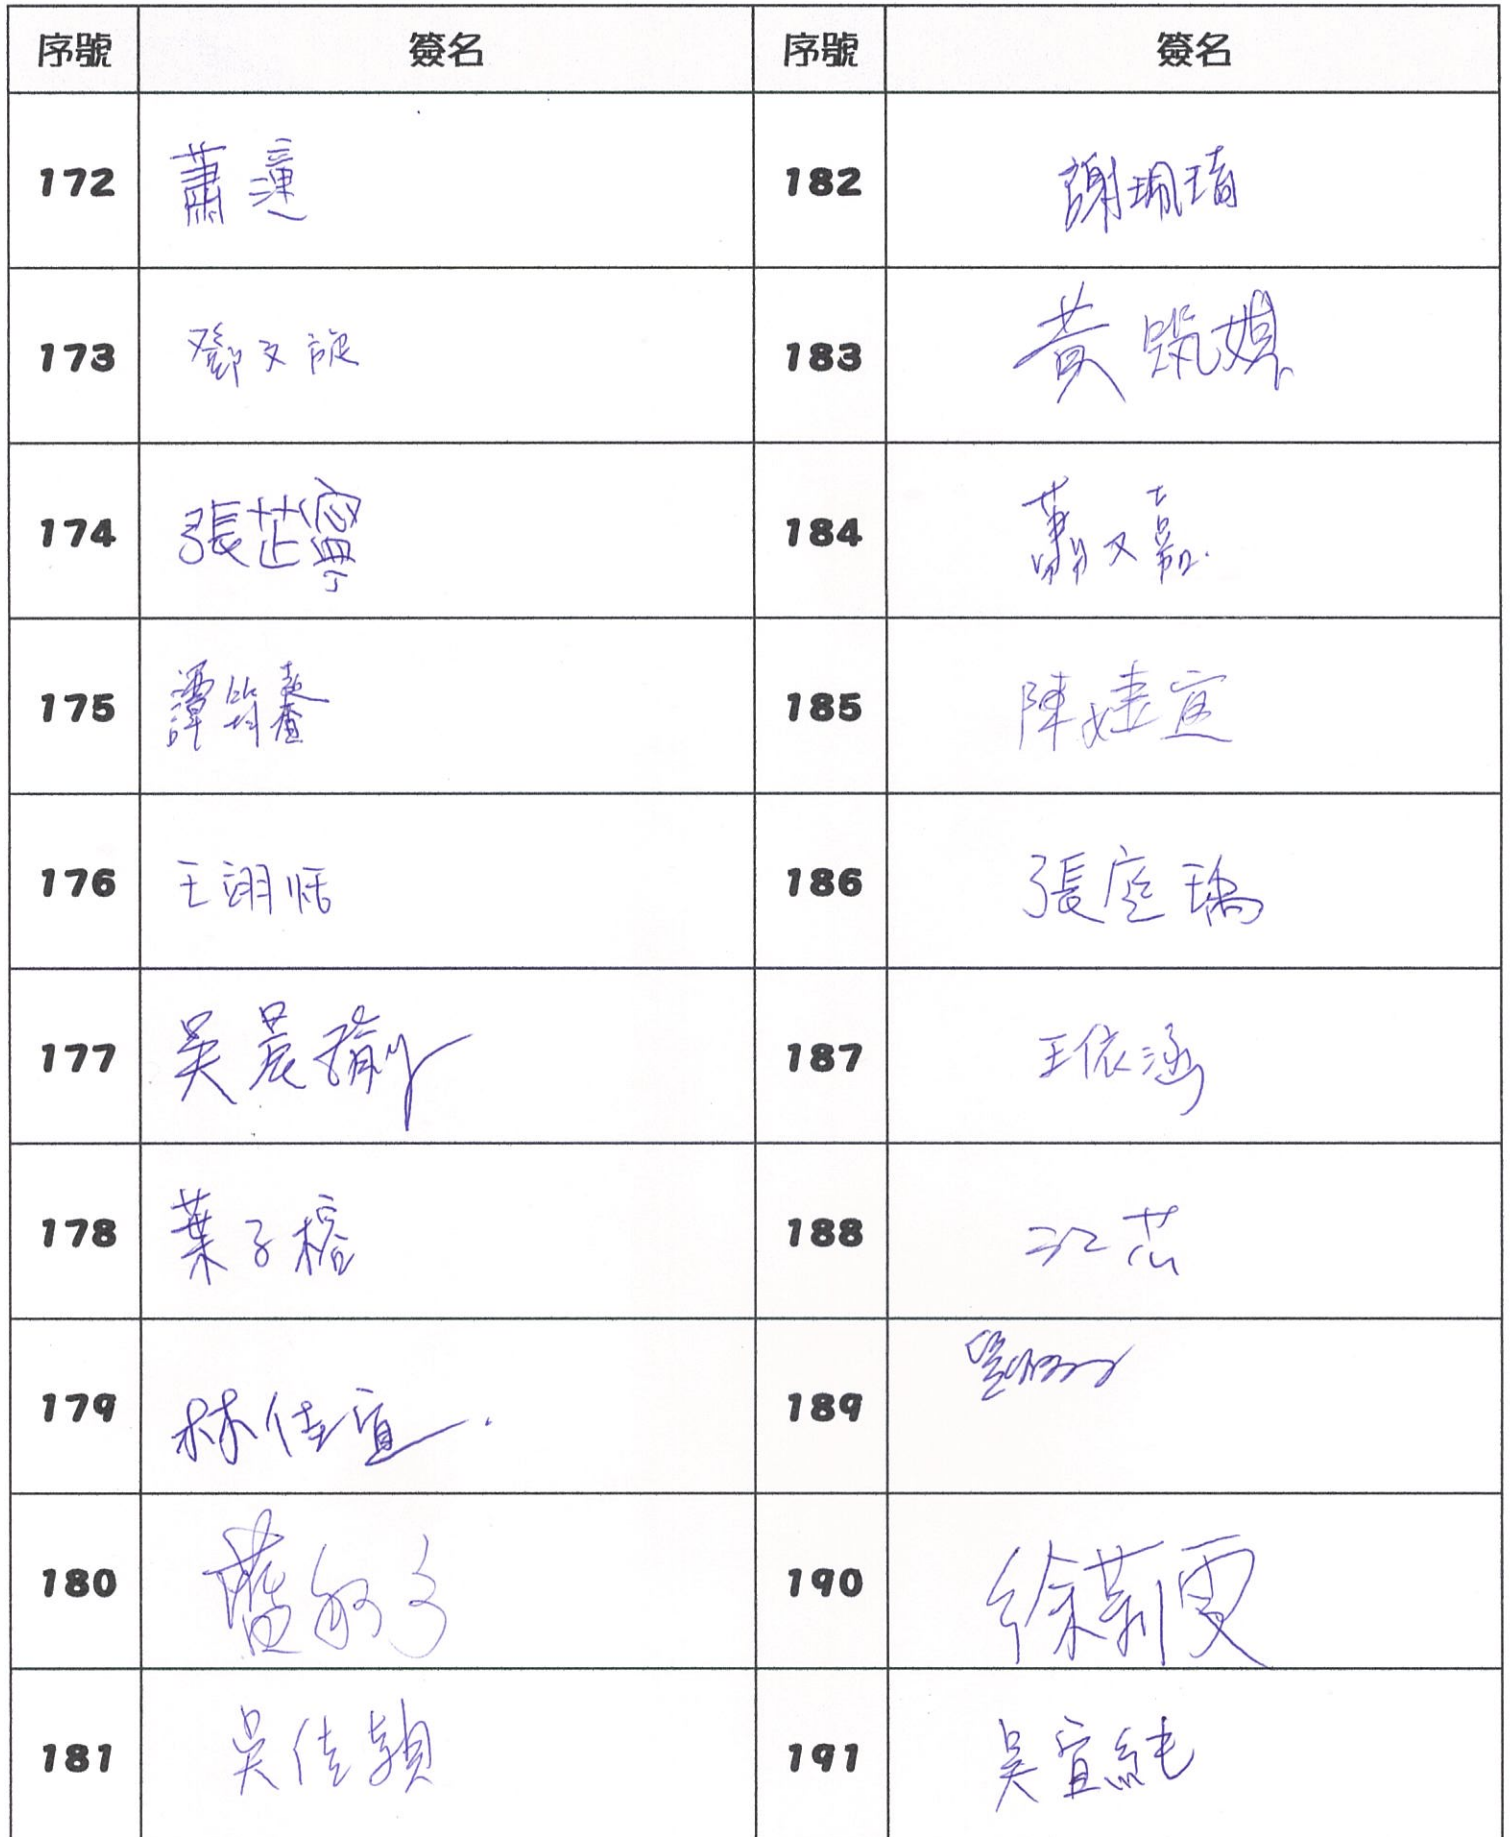 序號 簽名 序號 簽名
172 蕭 182 謝珮琦
173 鄧文旋 183 黃筑
174 張芷寧 184 蕭又嘉
175 譚筠 185 陳婕宜
176 王翊恬 186 張庭瑀
177 吳晨瑜 187 王依涵
178 葉子榕 188 江芯
179 林佳宜 189 劉
180 藍 190 徐莉雯
181 吳佳穎 191 吳宣純